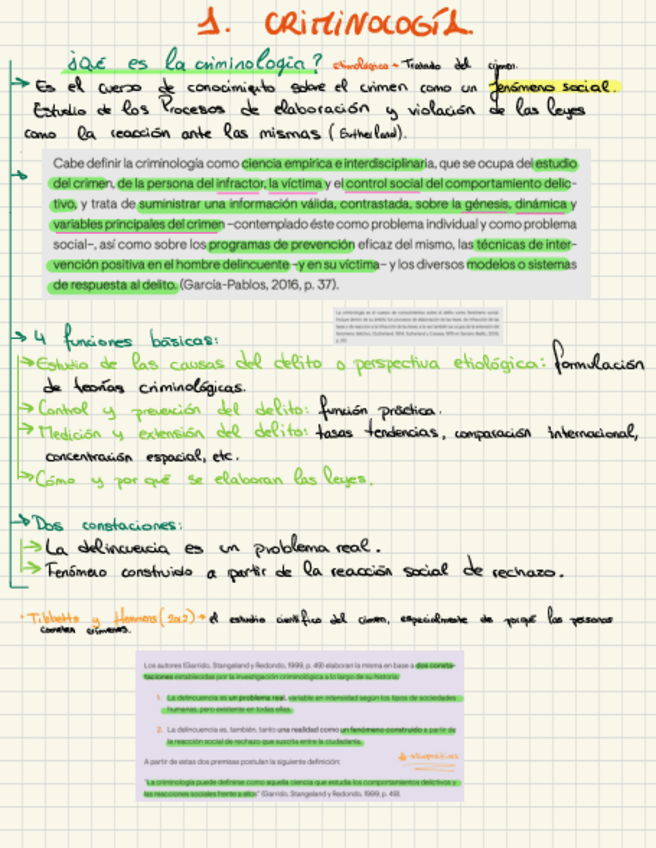 1. CRIMINOLOGÍA.
¿Qué es la criminología? etimológica - Tratado del crimen.
→ Es el cuerso de conocimiento sobre el crimen como un fenómeno social.
Estudio de los Procesos de elaboración y violación de las leyes
como la reacción ante las mismas (Sutherland).
Cabe definir la criminología como ciencia empírica e interdisciplinaria, que se ocupa del estudio
del crimen, de la persona del infractor, la víctima y el control social del comportamiento delic-
tivo, y trata de suministrar una información válida, contrastada, sobre la génesis, dinámica y
variables principales del crimen –contemplado éste como problema individual y como problema
social–, así como sobre los programas de prevención eficaz del mismo, las técnicas de inter-
vención positiva en el hombre delincuente –y en su víctima– y los diversos modelos o sistemas
de respuesta al delito. (García-Pablos, 2016, p. 37).
→ 4 funciones básicas:
→ Estudio de las causas del delito o perspectiva etiológica: formulación
de teorías criminológicas.
→ Control y prevención del delito: función práctica.
→ Medición y extensión del delito: tasas tendencias, comparación internacional,
concentración espacial, etc.
→ Cómo y por qué se elaboran las leyes.
→ Dos constaciones:
→ La delincuencia es un problema real.
→ Fenómeno construido a partir de la reacción social de rechazo.
· Tibbetts y Hemmens (2012) → el estudio científico del crimen, especialmente de porqué las personas
cometen crímenes.
Los autores (Garrido, Stangeland y Redondo, 1999, p. 49) elaboran la misma en base a dos consta-
taciones establecidas por la investigación criminológica a lo largo de su historia:
1. La delincuencia es un problema real, variable en intensidad según los tipos de sociedades
humanas, pero existente en todas ellas.
2. La delincuencia es, también, tanto una realidad como un fenómeno construido a partir de
la reacción social de rechazo que suscita entre la ciudadanía.
A partir de estas dos premisas postulan la siguiente definición:
"La criminología puede definirse como aquella ciencia que estudia los comportamientos delictivos y
las reacciones sociales frente a ellos" (Garrido, Stangeland y Redondo, 1999, p. 49).